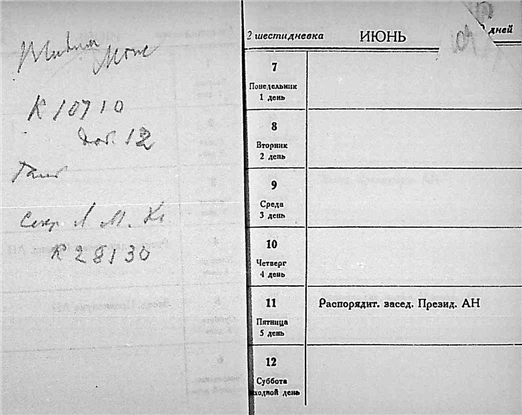 К 10710
доб. 12
Секр Л. М. К
К 28130
2 шестидневка ИЮНЬ дней
7
Понедельник
1 день
8
Вторник
2 день
9
Среда
3 день
10
Четверг
4 день
11
Пятница
5 день
Распорядит. засед. Презид. АН
12
Суббота
ыходной день